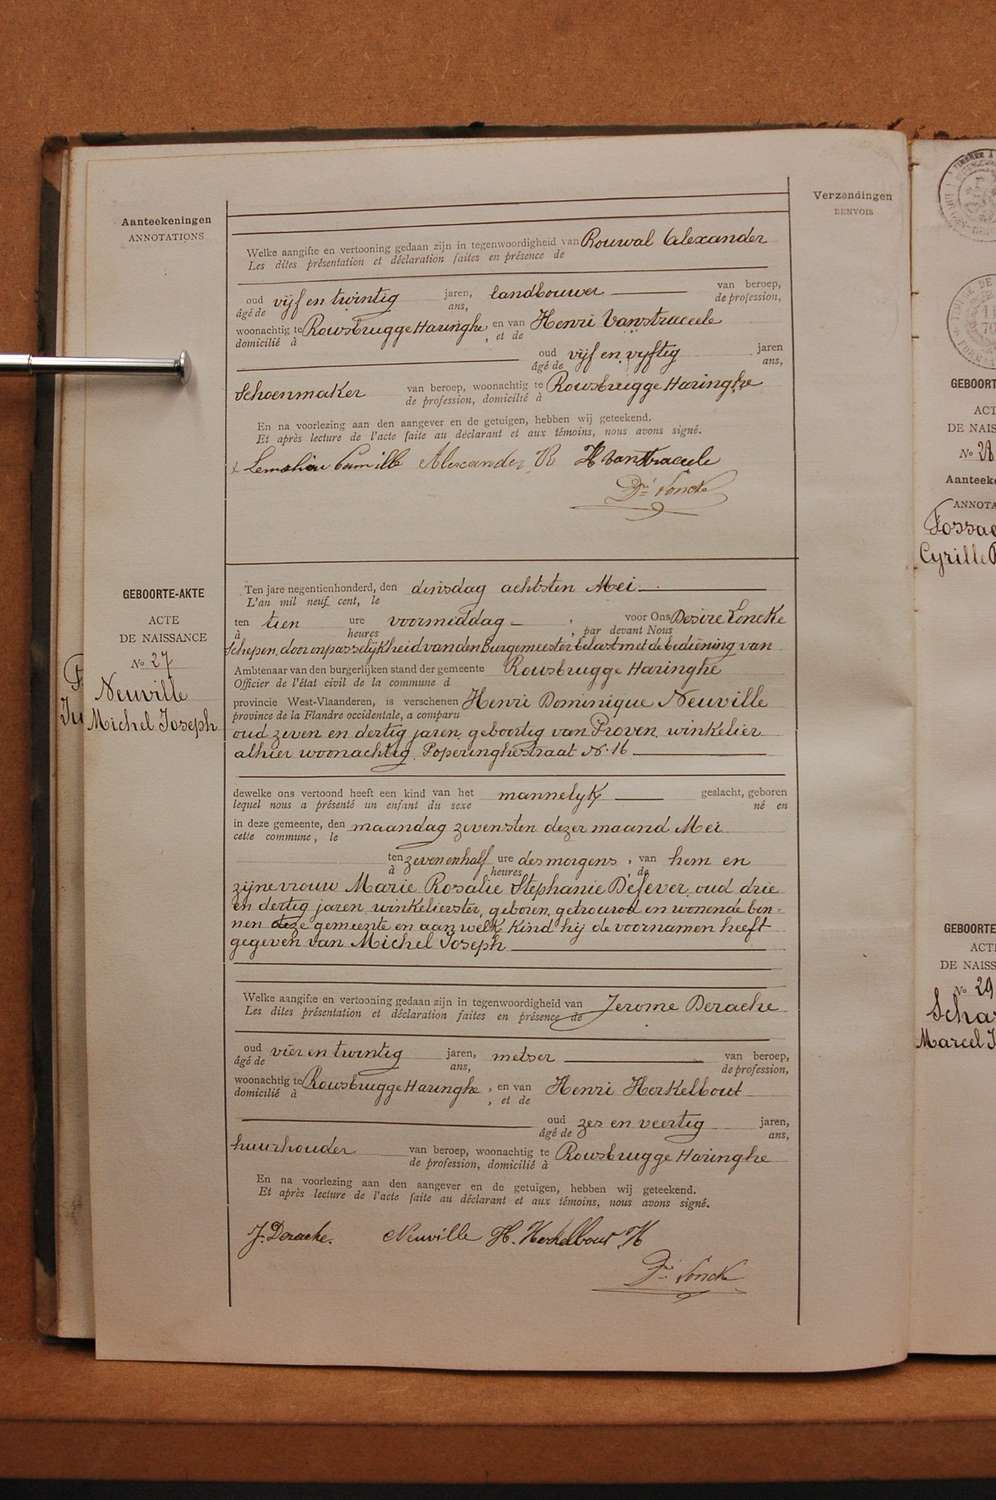 Aanteekeningen
ANNOTATIONS
Verzendingen
RENVOIS
Welke aangifte en vertooning gedaan zijn in tegenwoordigheid van Rouwal Alexander
Les dites présentation et déclaration faites en présence de
oud vijf en twintig jaren, landbouwer van beroep,
âgé de ans, de profession,
woonachtig te Rousbrugge Haringhe, en van Henri Vanstraceele
domicilié à , et de
oud vijf en vijftig jaren
âgé de ans,
Schoenmaker van beroep, woonachtig te Rousbrugge Haringhe
de profession, domicilié à
En na voorlezing aan den aangever en de getuigen, hebben wij geteekend.
Et après lecture de l'acte faite au déclarant et aux témoins, nous avons signé.
Lemahieu Camille Alexander R H Vanstraceele
Dré Lonck
GEBOORTE-AKTE
ACTE
DE NAISSANCE
No 27
Neuville
Michel Joseph
Ten jare negentienhonderd, den dinsdag achtsten Mei
L'an mil neuf cent, le
ten tien ure voormiddag ; voor Ons Desiré Loncke
à heures par devant Nous
Schepen, door onpasselijkheid van den Burgemeester belast met de bediening van
Ambtenaar van den burgerlijken stand der gemeente Rousbrugge Haringhe
Officier de l'état civil de la commune d
provincie West-Vlaanderen, is verschenen Henri Dominique Neuville
province de la Flandre occidentale, a comparu
oud zeven en dertig jaren, geboortig van Proven, winkelier
alhier woonachtig, Poperinghestraat No 16
dewelke ons vertoond heeft een kind van het mannelyk geslacht, geboren
lequel nous a présenté un enfant du sexe né en
in deze gemeente, den maandag zevensten dezer maand Mei
cette commune, le
ten zeven en half ure des morgens, van hem en
à heures de
zijne vrouw Marie Rosalie Stephanie Defever, oud drie
en dertig jaren, winkelierster, geboren, getrouwd en wonende bin-
nen deze gemeente en aan welk kind hij de voornamen heeft
gegeven van Michel Joseph
Welke aangifte en vertooning gedaan zijn in tegenwoordigheid van Jerome Derache
Les dites présentation et déclaration faites en présence de
oud vier en twintig jaren, metser van beroep,
âgé de ans, de profession,
woonachtig te Rousbrugge Haringhe, en van Henri Herkelbout
domicilié à , et de
oud zes en veertig jaren,
âgé de ans,
huurhouder van beroep, woonachtig te Rousbrugge Haringhe
de profession, domicilié à
En na voorlezing aan den aangever en de getuigen, hebben wij geteekend.
Et après lecture de l'acte faite au déclarant et aux témoins, nous avons signé.
J. Derache. Neuville H. Herkelbout H
Dré Lonck
GEBOORT
ACT
DE NAIS
No 28
Aanteek
ANNOTA
Fossa
Cyrille
GEBOORTE
ACT
DE NAISS
No 29
Scha
Marcel J